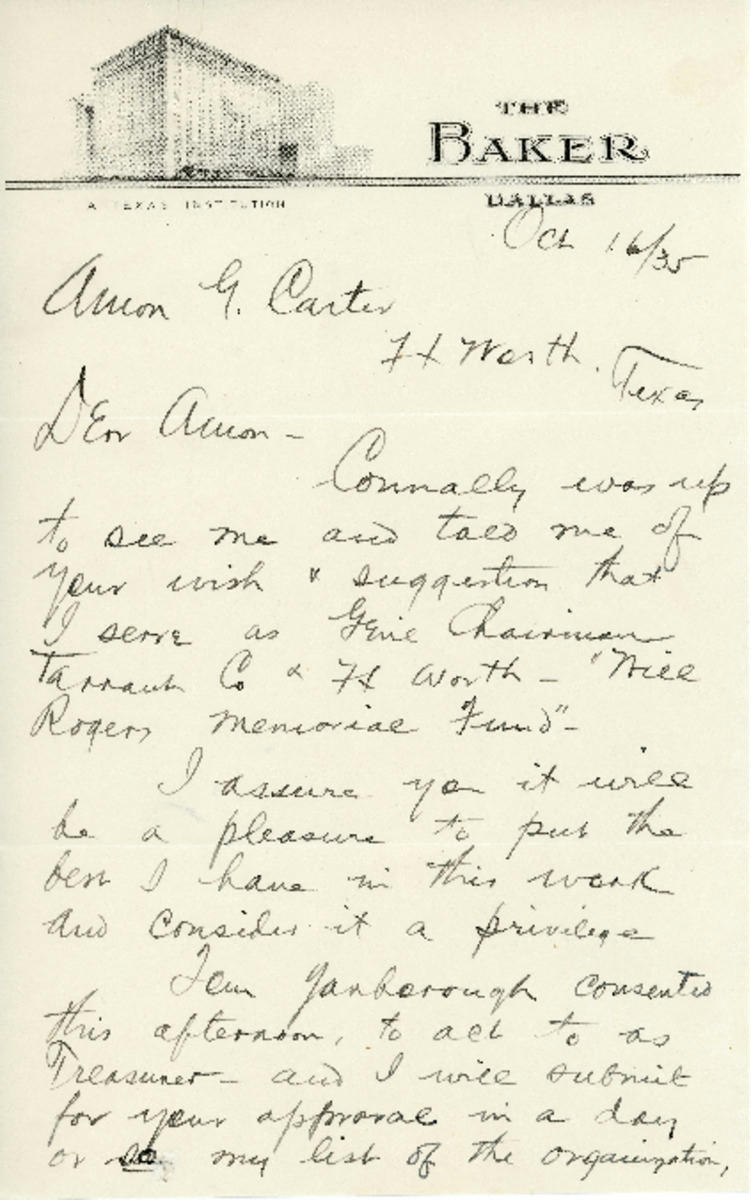 THE
BAKER
DALLAS
A TEXAS INSTITUTION
Oct 16/35
Amon G. Carter
Ft Worth. Texas
Dear Amon -
Connally was up
to see me and told me of
your wish & suggestion that
I serve as Genl Chairman
Tarrant Co & Ft Worth - "Will
Rogers Memorial Fund" -
I assure you it will
be a pleasure to put the
best I have in this work
and consider it a privilege
Yarborough consented
this afternoon, to act to as
Treasurer - and I will submit
for your approval in a day
or so my list of the organization,